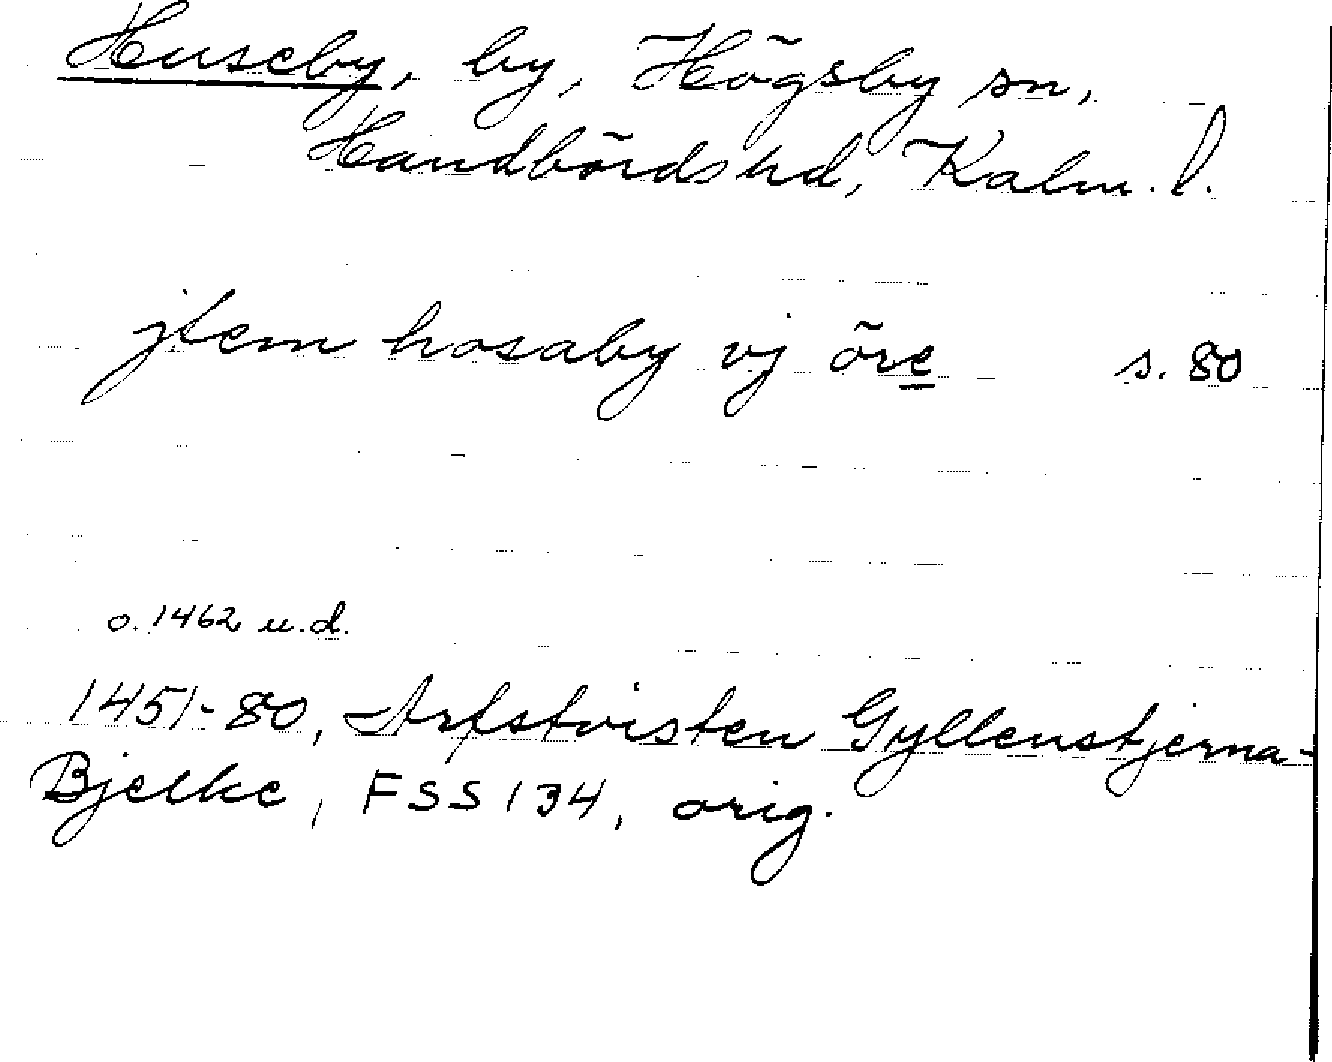 Huseby, by, Högsby sn,
Handbördshd, Kalm. l.
jtem hosaby vj öre s. 80
o. 1462 u.d.
1451-80, Arfstvisten Gyllenstjerna-
Bjelke, FSS 134, orig.